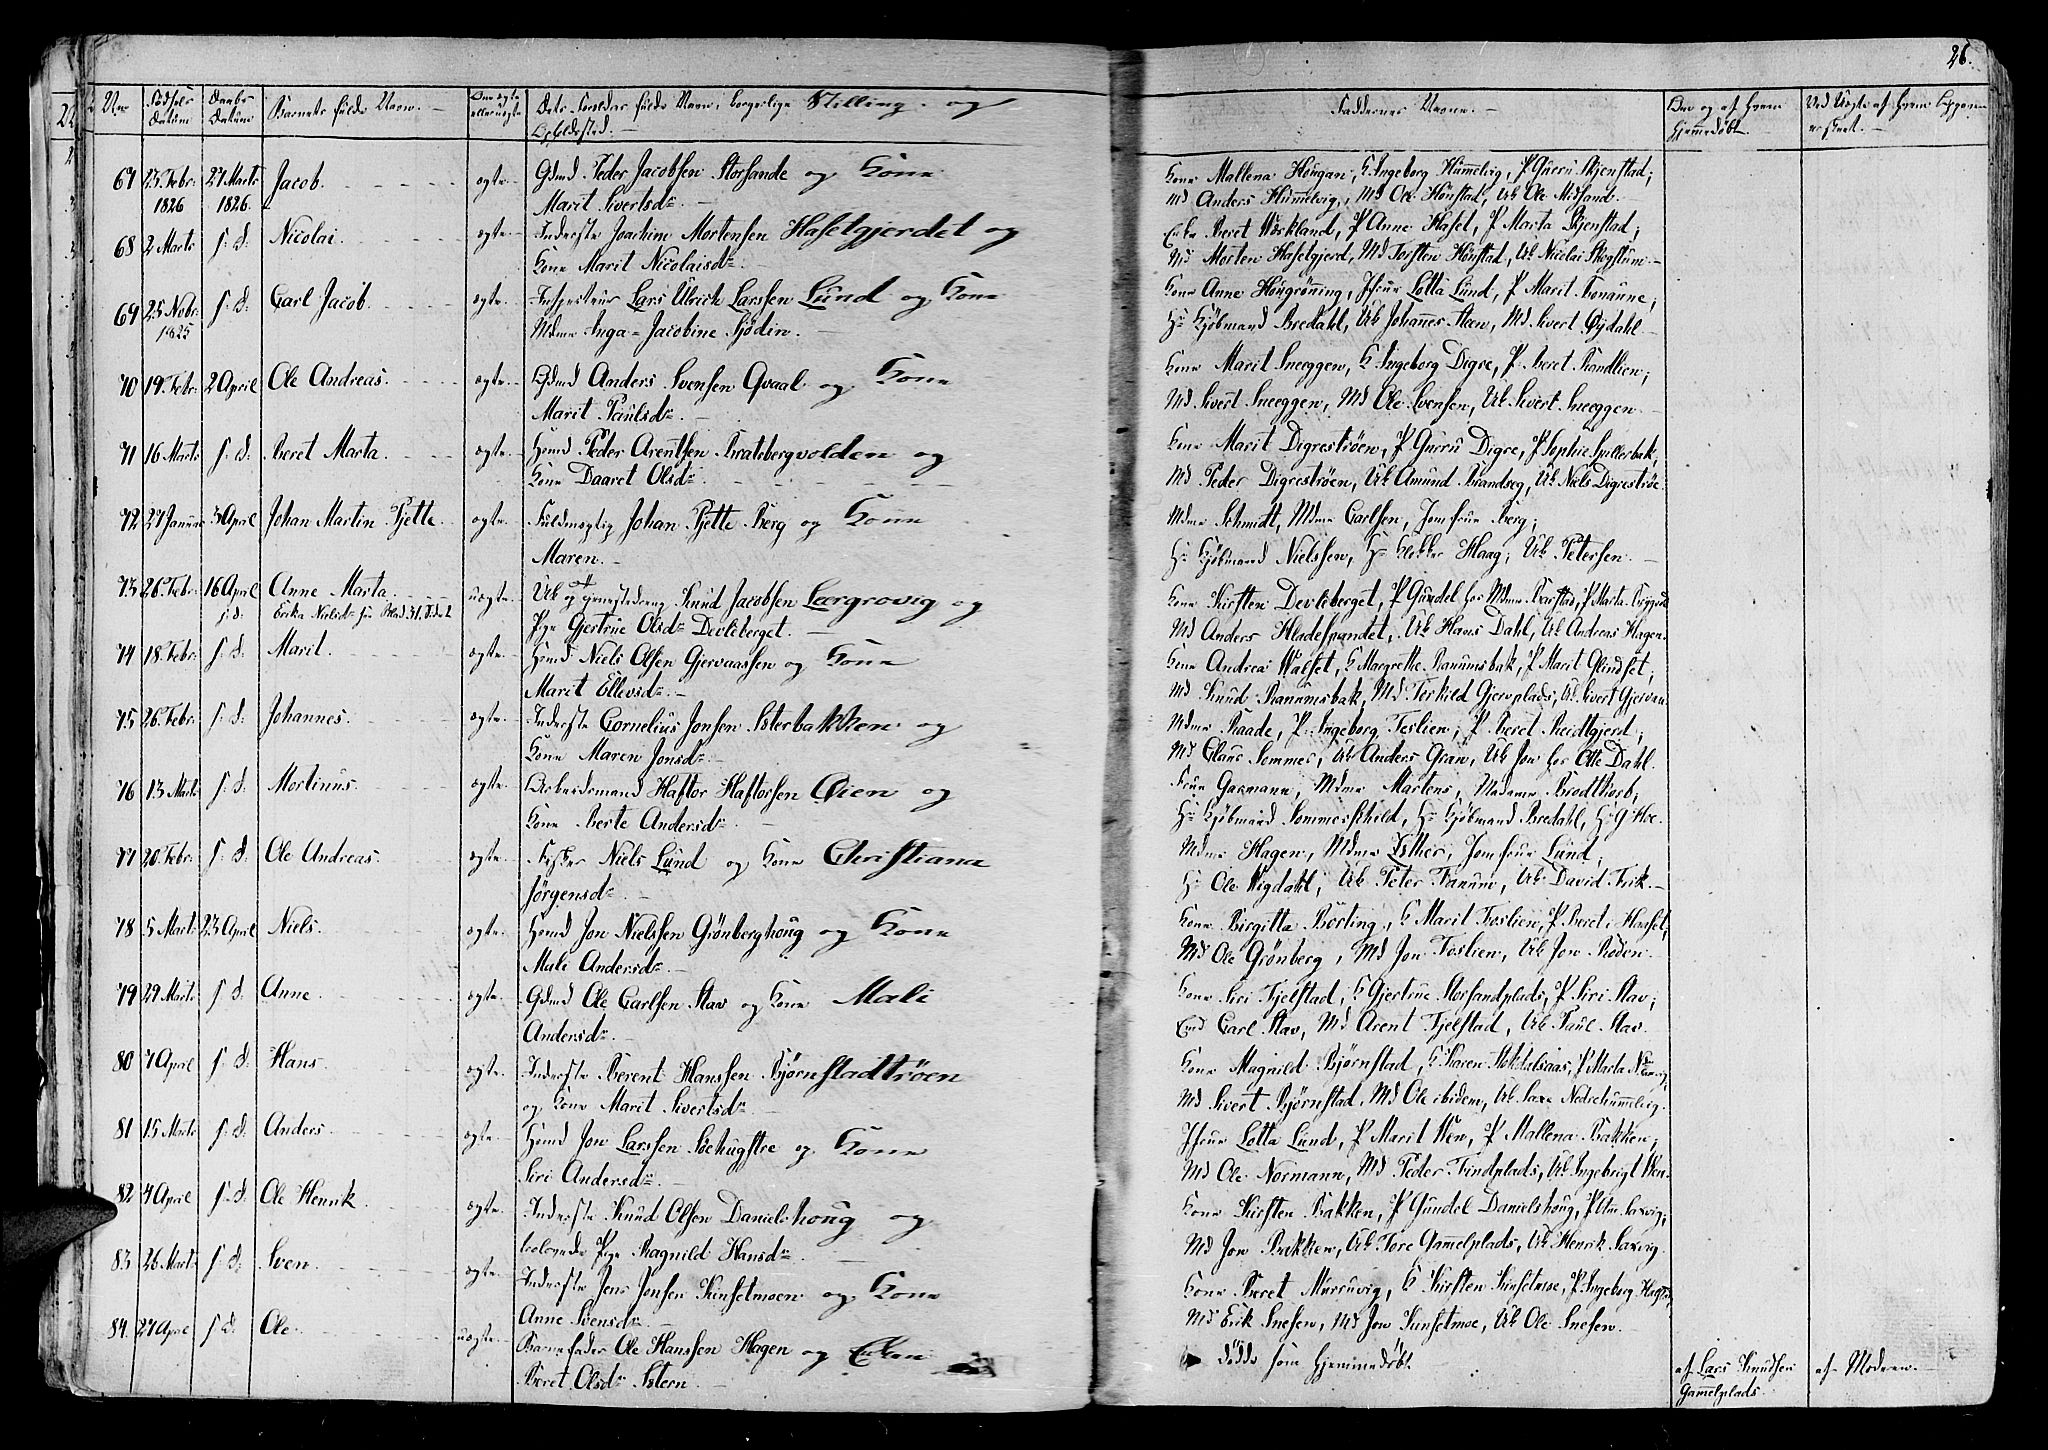 26.
No
Fødsels Datum
Daabs Datum
Barnets fulde Navn.
Om ægte eller uægte
Dets Forældres fulde Navn, borgerlige Stilling og
Opholdssted.
Faddernes Navne.
Om og af hvem
hjemmedøbt.
67 23 Febr. 27 Marts Jacob. ægte. Gdmd Peder Jacobsen Storsande og Kone
1826 1826.
Marit Sivertsdr.
Kone Mallena Hougan, K Ingeborg Hummelvig, P Gurru Skjenstad;
Md Anders Hummelvig, Md Ole Hønstad, Uk Ole Midsand.
68 2 Marts s. d. Nicolai. ægte. Inderste Joachim Mortensen Haselgjerdet og
Kone Marit Nicolaisdr.
Enke Beret Workland, P Anne Hasel, P Marta Skjenstad;
Md Morten Haselgjerd, Md Torsten Hønstad, Uk Nicolai Skogstum
69 25 Nobr. s. d. Carl Jacob. ægte. Lars Ulrich Larssen Lund og Kone
1825
Mdme Inga Jacobine Sjødin.
Kone Anne Hougrønning, Jfrue Lotta Lund, P Marit Bonaune;
Hr Kjøbmand Bredahl, Uk Johannes Steen, Md Sivert Øydahl
70 19. Febr. 2 April Ole Andreas. ægte. Gdmd Anders Svensen Qvaal og Kone
Marit Paulsdr.
Kone Marit Sneeggen, K Ingeborg Digre, P Beret Randlien;
Md Sivert Sneeggen, Md Ole Svensen, Uk Sivert Sneeggen
71 16 Marts s. d. Beret Marta. ægte. Hmd Peder Arentsen Bratsbergvolden og
Kone Daaret Olsdr.
Kone Marit Digrestrøen, P Gurru Digre, P Sophie Hullerbak,
Md Peder Digrestrøen, Uk Amund Brandseg, Uk Niels Digrestrøe
72 27 Januar 3 April Johan Martin Pjette. ægte. Fuldmægtig Johan Pjette Berg og Kone
Maren.
Mdme Schmidt, Mdme Carlsen, Jomfrue Berg;
Hr Kjøbmand Nielssen, Hr Klokker Haag, Uk Petersen.
73 26. Febr. 16 April Anne Marta uægte. Uk og Knud Jacobsen Leergrovig og
s. d. Erika Nielsdr see Blad 31.
Pige Gjertrue Olsdr Devleberget.
Kone Kirsten Devleberget, P Gundel hos Mdme Barstad, P Marta
Md Anders Hladespandet, Uk Hans Dahl, Uk Andreas Hagen.
74 18. Febr. s. d. Marit. ægte. Hmd Niels Olsen Gjervaassen og Kone
Marit Ellevsdr.
Kone Andrea Walset, K Margrethe Ranumsbak, P Marit Glindset;
Md Knud Ranumsbak, Md Terkild Gjervplads, Uk Sivert Gjervaa
75 26. Febr. s. d. Johannes. ægte. Inderste Cornelius Jonsen Esterbakken og
Kone Maren Jonsdr.
Mdme Raade, P Ingeborg Foslien, P Beret Reidtgjerd;
Md Claus Semmes, Uk Anders Gran, Uk Jon hos Otte Dahl.
76 13 Marts s. d. Mortinus. ægte. Arbeidsmand Haftor Haftorsen Øien og
Kone Berte Andersdr.
Frue Garmann, Mdme Martens, Madame Brodtkorb;
Hr Kjøbmand Sommerschild, Hr Kjøbmand Bredahl, Hr G Hoe.
77 20. Febr. s. d. Ole Andreas. ægte. Fisker Niels Lund og Kone Christiana
Jørgensdr.
Mdme Hagen, Mdme Esther, Jomfrue Lund;
Hr Ole Wigdahl, Uk Peter Fanum, Uk David Frik.
78 5 Marts 23 April Niels. ægte. Hmd Jon Nielssen Grønberghoug og Kone
Mali Andersdr.
Kone Birgitta Børting, K Marit Foslien, P Beret Hassel;
Md Ole Grønberg, Md Jon Foslien, Uk Jon Roden.
79 29 Marts s. d. Anne. ægte. Gdmd Ole Carlsen Stav og Kone Mali
Andersdr.
Kone Siri Fjelstad, K Gjertrue Storsandplads, P Siri Stav;
Carl Stav, Md Arent Fjelstad, Uk Paul Stav.
80 7 April s. d. Hans. ægte. Inderste Berent Hanssen Bjørnstadtrøen
og Kone Marit Sivertsdr
Kone Magnild Bjørnstad, K Karen Stokdalsaas, P Marta
Md Sivert Bjørnstad, Md Ole ibidem, Uk Saxe Nedrehummelvig.
81 15 Marts s. d. Anders. ægte. Hmd Jon Larssen Søehugstre og Kone
Siri Andersdr.
Jfrue Lotta Lund, P Marit Wen, P Mallena Bakken;
Md Ole Normann, Md Peder Findplads, Uk Ingebrigt Wen.
82 4 April s. d. Ole Henrik. ægte. Inderste Knud Olsen Danielshoug og
trolovede Pige Ragnild Hansdr
Kone Kirsten Bakken, P Gundel Danielshoug, P Ane Saxvig;
Md Jon Bakken, Uk Tore Gammelplads, Uk Henrik Saxvig.
83 26 Marts s. d. Sven. ægte. Inderste Jens Jonsen Kunselmoen og Kone
Anne Svensdr.
Kone Beret Muruvig, K Kirsten Kunselmoe, P Ingeborg
Md Erik Snesen, Md Jon Kunselmoe, Uk Ole Snesen.
84. 27 April s. d. Ole. uægte. Barnefader Ole Hanssen Hagen og Enken
Beret Olsdr Estern.
Døde som hjemmedøbt.
af Lars Knudsen
Gammelplads.
af Moderen.